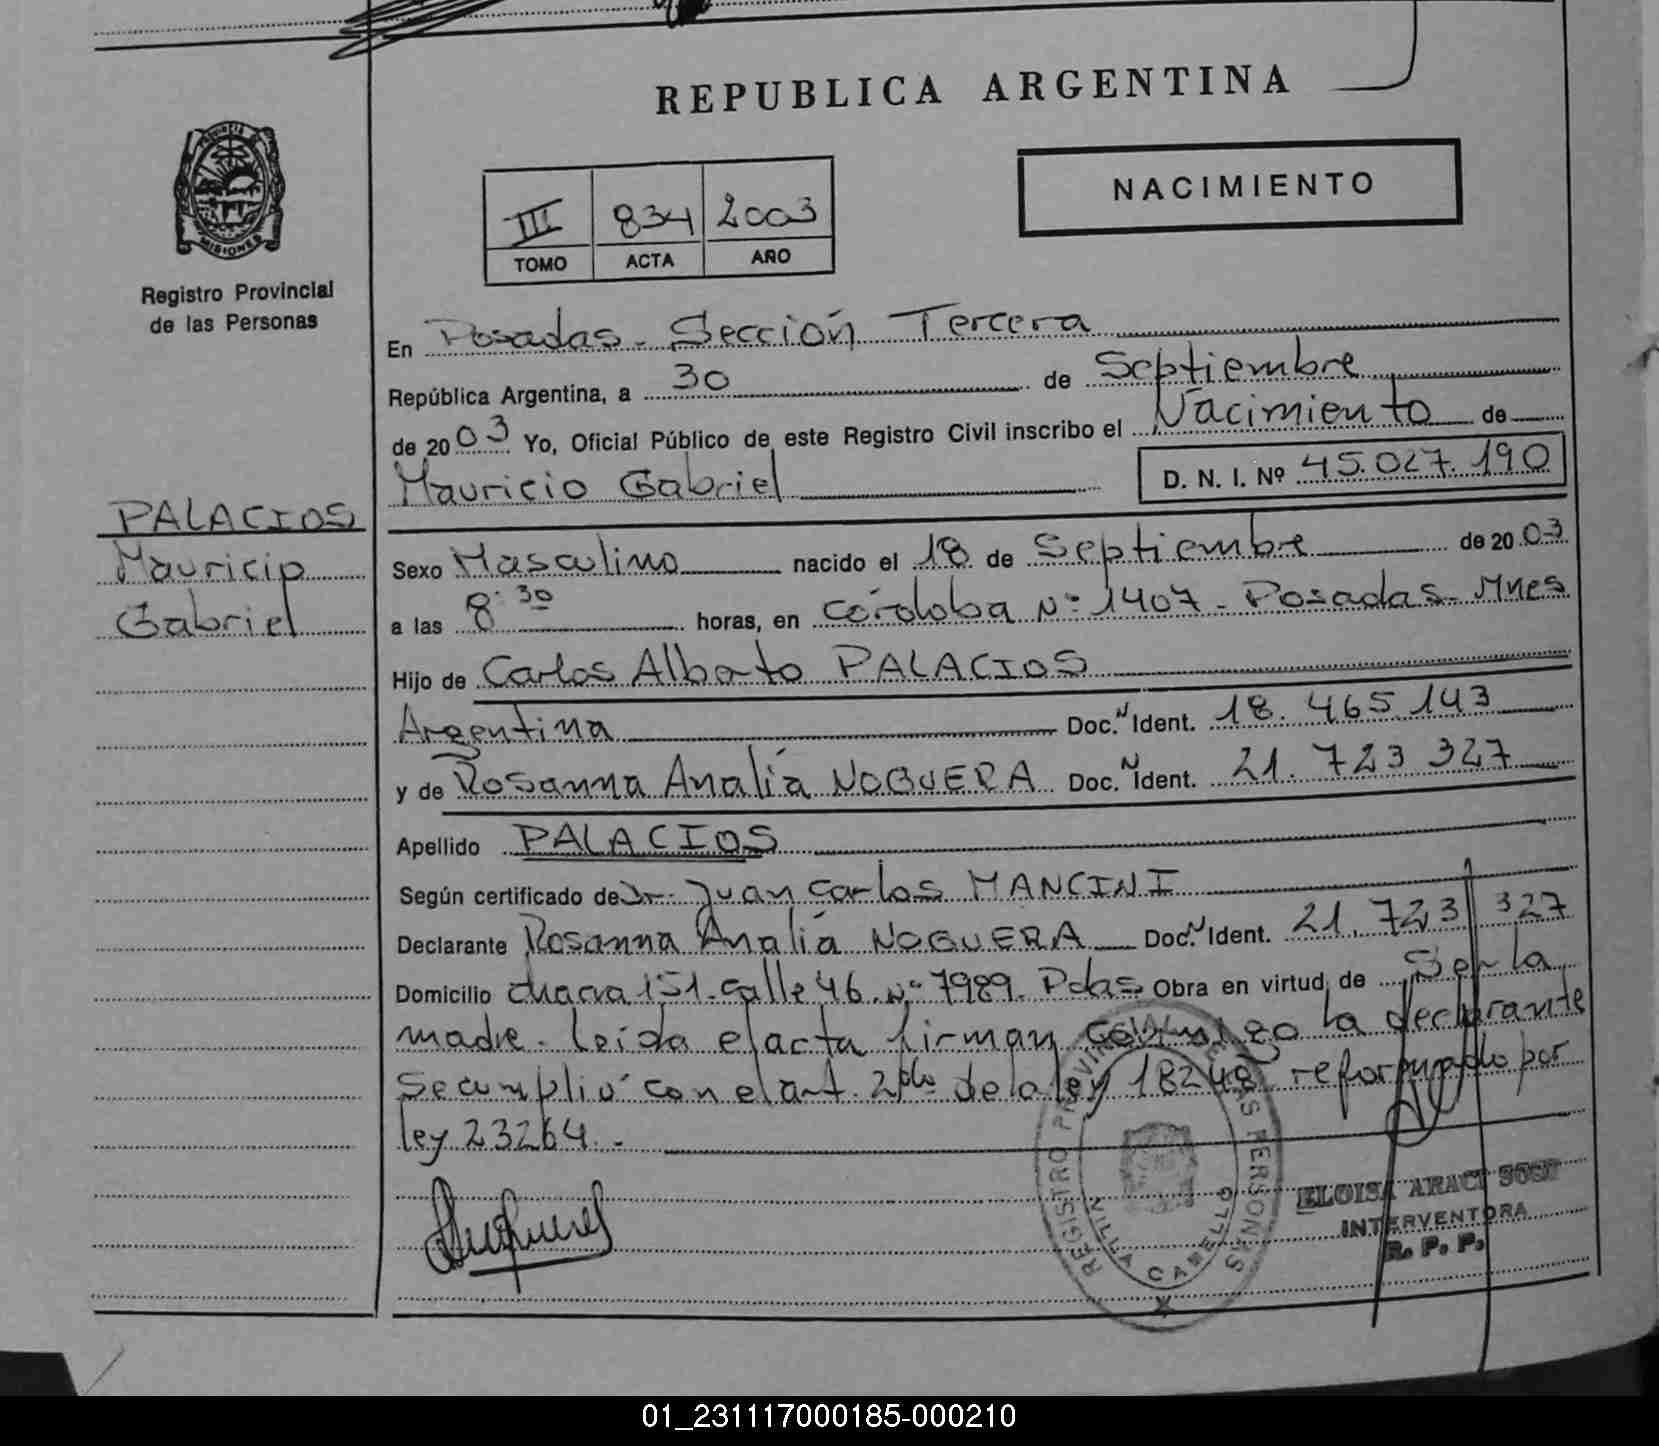 REPUBLICA ARGENTINA
NACIMIENTO
III 834 2003
TOMO ACTA AÑO
PROVINCIA DE
MISIONES
Registro Provincial
de las Personas
En Posadas - Sección Tercera
República Argentina, a 30 de Septiembre
de 2003 Yo, Oficial Público de este Registro Civil inscribo el Nacimiento de
Mauricio Gabriel D. N. I. Nº 45.027.190
PALACIOS
Mauricio
Gabriel
Sexo Masculino nacido el 18 de Septiembre de 2003
a las 8:30 horas, en Córdoba Nº 1407 - Posadas - Mnes
Hijo de Carlos Alberto PALACIOS
Argentina Doc. N Ident. 18.465.143
y de Rosanna Analía NOGUERA Doc. N Ident. 21.723.327
Apellido PALACIOS
Según certificado de Dr. Juan Carlos MANCINI
Declarante Rosanna Analía NOGUERA Doc. N Ident. 21.723.327
Domicilio chacra 151. calle 46. Nº 7989. Pdas Obra en virtud de Ser la
madre. leida el acta firman conmigo la declarante
Se cumplió con el art. 2do de la ley 18248 reformado por
ley 23264.-
REGISTRO PROVINCIAL DE LAS PERSONAS
VILLA CABELLO
ELOISA ARACI SOSA
INTERVENTORA
R. P. P.
01_231117000185-000210